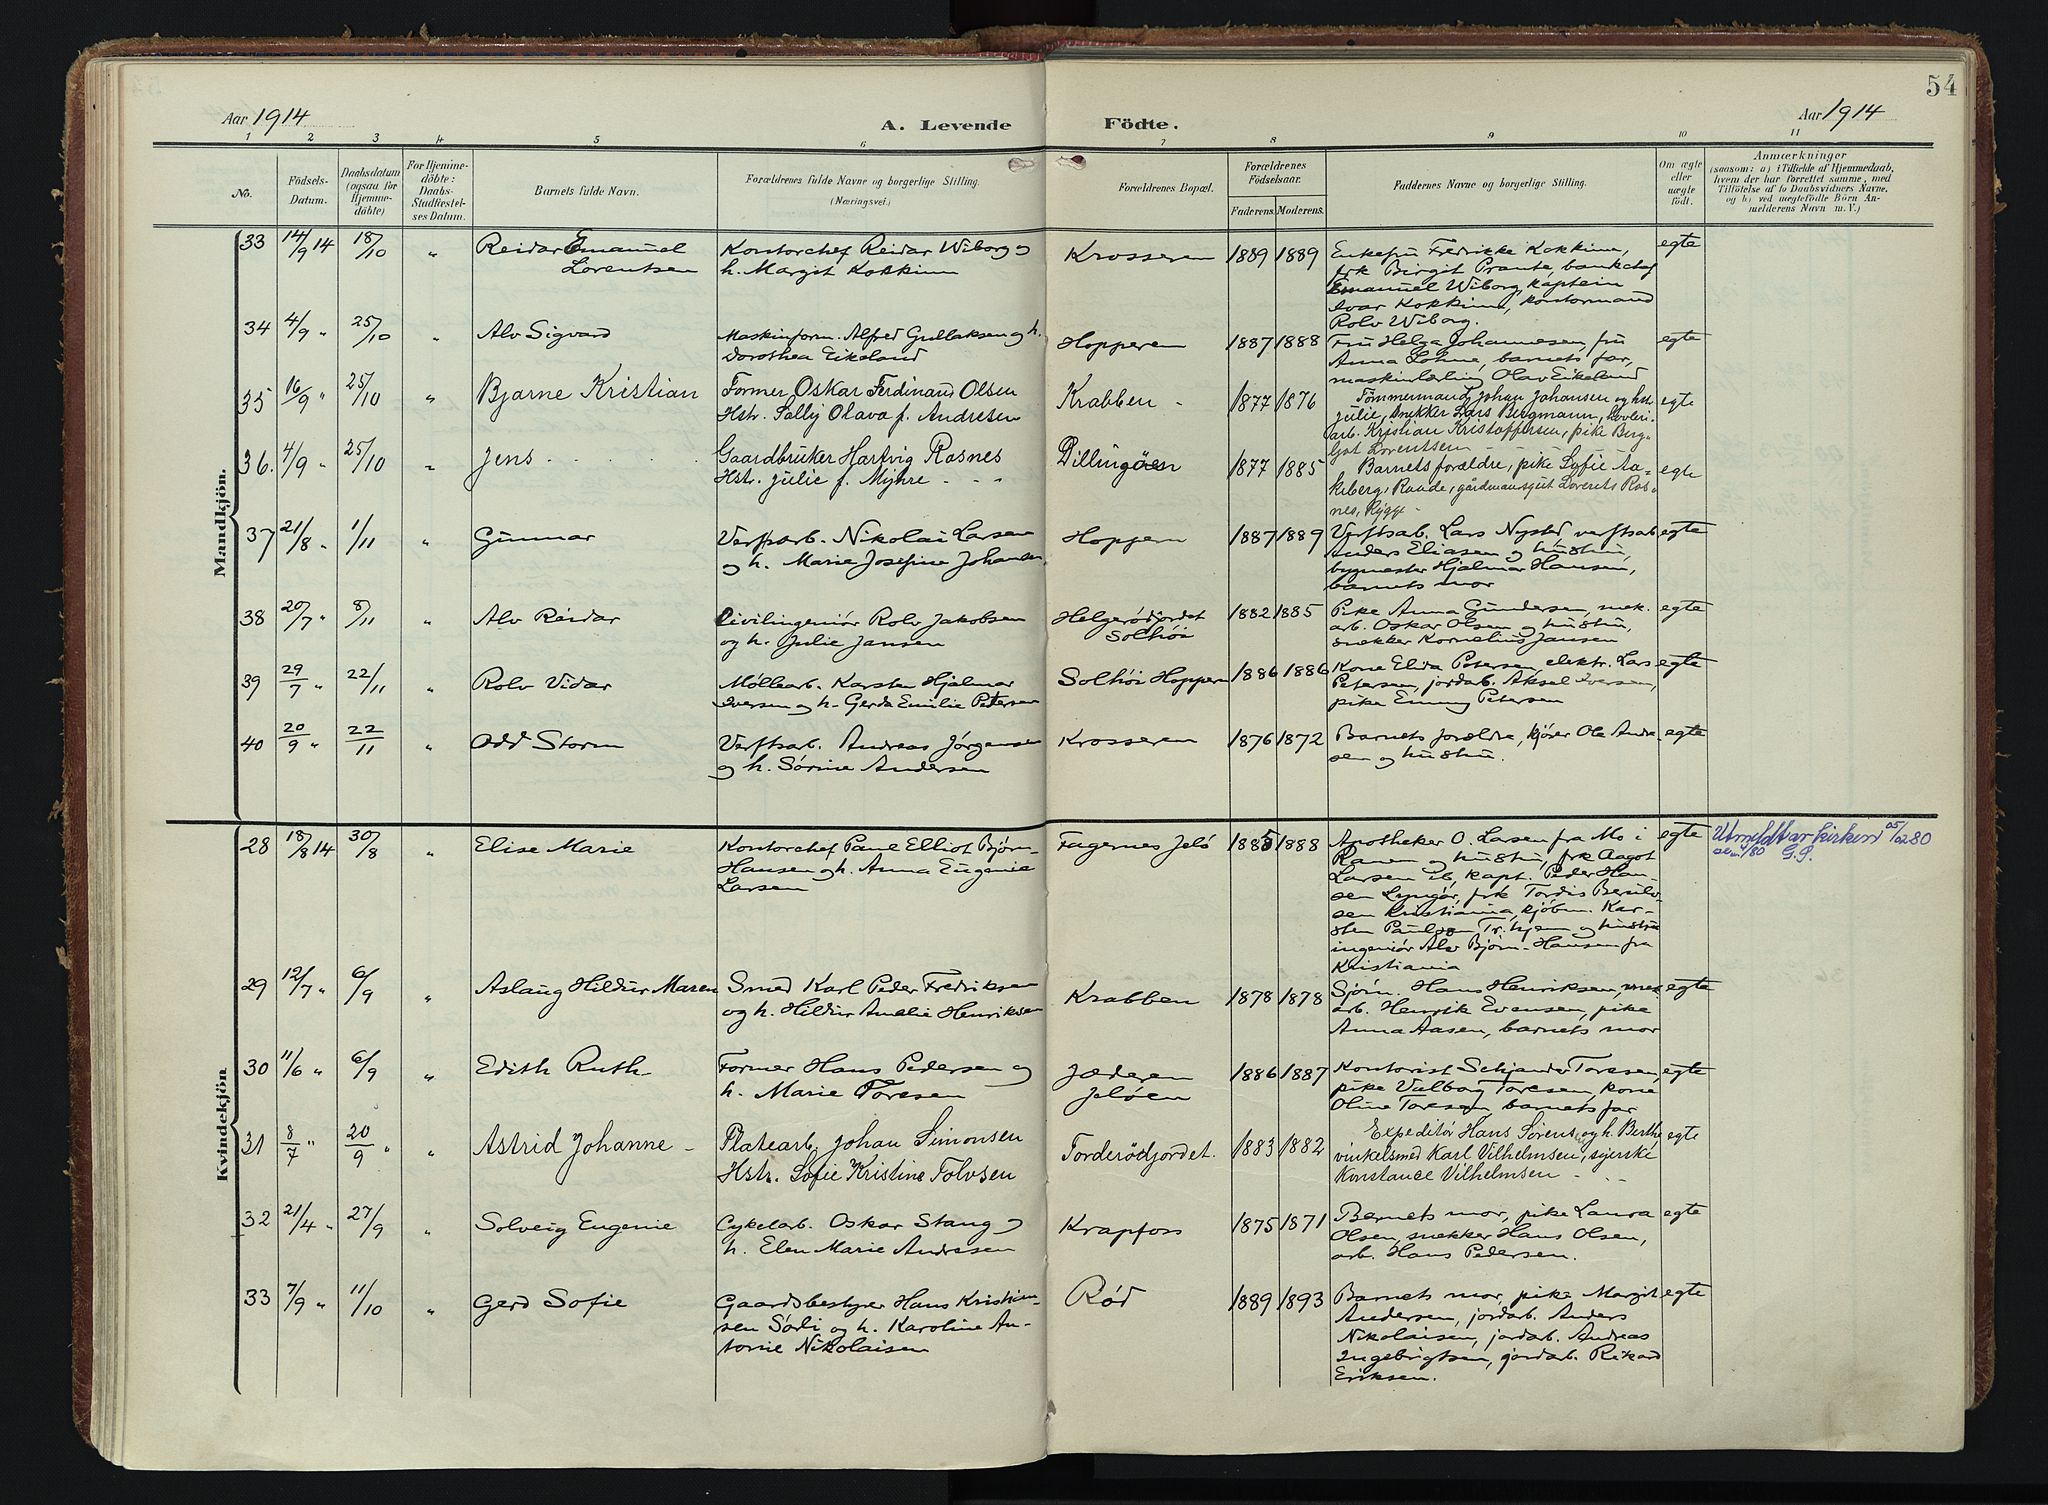 54
Aar 1914
A. Levende Födte.
Aar 1914
1 2 3 4 5 6 7 8 9 10 11
No.
Födsels-Datum.
Daabsdatum (ogsaa for Hjemmedöbte)
For Hjemmedöbte: Daabs-Stadfæstelses Datum.
Barnets fulde Navn.
Forældrenes fulde Navne og borgerlige Stilling.
(Næringsvei.)
Forældrenes Bopæl.
Forældrenes Födselsaar.
Faderens. Moderens.
Faddernes Navne og borgerlige Stilling.
Om ægte eller uægte födt.
Anmærkninger
(saasom: a) i Tilfælde af Hjemmedaab,
hvem der har forrettet samme, med
Tilföielse af to Daabsvidners Navne,
og b) ved uægtefödte Börn Anmelderens Navn m. V.)
Mandkjön.
33 14/9 14 18/10 " Reidar Emanuel Kontorchef Reidar Wiborg og Krosseren 1889 1889 Enkefru Fredrikke Kokkinn, egte
Lorentsen h. Margit Kokkinn frk Birgit Prante, bankchef
Emanuel Wiborg, kaptein
Ivar Kokkinn, kontormand
Rolv Wiborg.
34 4/9 " 25/10 " Alv Sigvard Maskinform. Alfred Gullaksen og h. Hopperen 1887 1888 Fru Helga Johannesen, fru egte
Dorothea Eikeland Anna Lohne, barnets far,
maskinlærling Olav Eikeland
35 16/9 " 25/10 " Bjarne Kristian Former Oskar Ferdinand Olsen Krabben - 1877 1876 Tömmermand Johan Johansen og hst. egte
Hstr. Sally Olava f. Andresen Julie, snekker Lars Bergmann, hovleri-
arb. Kristian Kristoffersen, pike Berg-
ljot Lorentsen
36. 4/9 " 25/10 " Jens Gaardbruker Hartvig Rosnes Dillingöen 1877 1885 Barnets forældre, pike Sofie Aa- egte
Hstr. Julie f. Myhre - - - keberg, Raade, gårdmansgut Lorents Ros-
nes, Rygge -
37 21/8 " 1/11 " Gunnar Verftsarb. Nikolai Larsen Hoppern 1887 1889 Verftsarb. Lars Nysted, verftsarb egte
og h. Marie Josefine Johansen Anders Eliasen og hustru,
bygmester Hjalmar Hansen,
barnets mor
38 20/7 " 8/11 " Alv Reidar Civilingeniør Rolv Jakobsen Helgerødfjordet 1882 1885 Pike Anna Gundersen, mek. egte
og h. Julie Jansen Solhöi arb. Oskar Olsen og hustru,
snekker Kornelius Jansen
39 29/7 " 22/11 " Rolv Vidar Møllearb. Karsten Hjalmar Solhöi Hoppern 1886 1886 Kone Elida Petersen, elektr. Lars egte
Iversen og h. Gerda Emilie Petersen Petersen, jordarb. Aksel Iversen,
pike Emmy Petersen
40 20/9 " 22/11 " Odd Storm Verftsarb. Andreas Jørgensen Krosseren 1876 1872 Barnets forældre, kjører Ole Andre- egte
og h. Sørine Andersen sen og hustru.
Kvindekjön
28 18/8 14 30/8 " Elise Marie Kontorchef Paul Elliot Bjørn- Fagernes Jelö 1885 1888 Apotheker O. Larsen fra Mo i egte Utmeldt av kirken 05/02 80
Hansen og h. Anna Eugenie Ranen og hustru, frk Aagot G.P.
Larsen Larsen ib. kapt. Peder Han-
sen Lyngør, frk Tordis
Kristiania, kjøbm. Kar-
sten Paulsen Tr.hjem og hustru
ingeniør Alv Bjørn-Hansen fra
Kristiania
29 12/7 " 6/9 " Aslaug Hildur Maren Smed Karl Peder Fredriksen Krabben 1878 1878 Sjöm. Hans Henriksen, mek. egte
og h. Hildur Amalie Henriksen arb. Henrik Evensen, pike
Anna Aasen, barnets mor
30 11/6 " 6/9 " Edith Ruth Former Hans Pedersen og Jæderen 1886 1887 Kontorist Schjander Toresen, egte
h. Marie Toresen Jelöen pike Valborg Toresen, kone
Oline Toresen, barnets far
31 8/7 " 20/9 " " Astrid Johanne - Platearb. Johan Simonsen Torderödjordet. 1883 1882 Expeditör Hans Sörensen og h. Berthe egte
Hstr. Sofie Kristine Tolvsen vinkelsmed Karl Vilhelmsen, syerske
Konstance Vilhelmsen - . .
32 21/4 " 27/9 " Solveig Eugenie Cykelarb. Oskar Stang og Krapfoss 1875 1871 Barnets mor, pike Laura egte
h. Elen Marie Andresen Olsen, snekker Hans Olsen,
arb. Hans Pedersen.
33 7/9 " 11/10 " Gerd Sofie Gaardsbestyrer Hans Kristian- Rød 1889 1893 Barnets mor, pike Margit egte
sen Sørli og h. Karoline An- Andersen, jordarb. Anders
tonie Nikolaisen Nikolaisen, jordarb. Andreas
Ingebrigtsen, jordarb. Rikard
Eriksen.